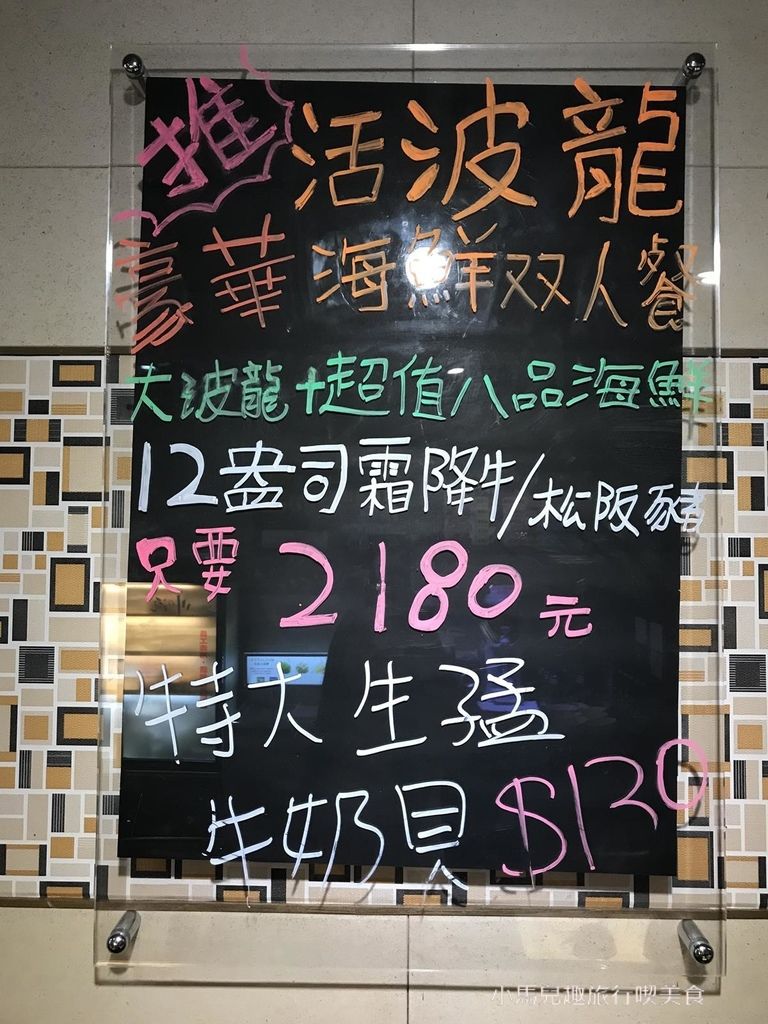 推 活波龍
豪華海鮮双人餐
大波龍+超值八品海鮮
12盎司霜降牛/松阪豬
只要 2180元
特大生猛
牛奶貝 $120
小馬兒趣旅行喫美食